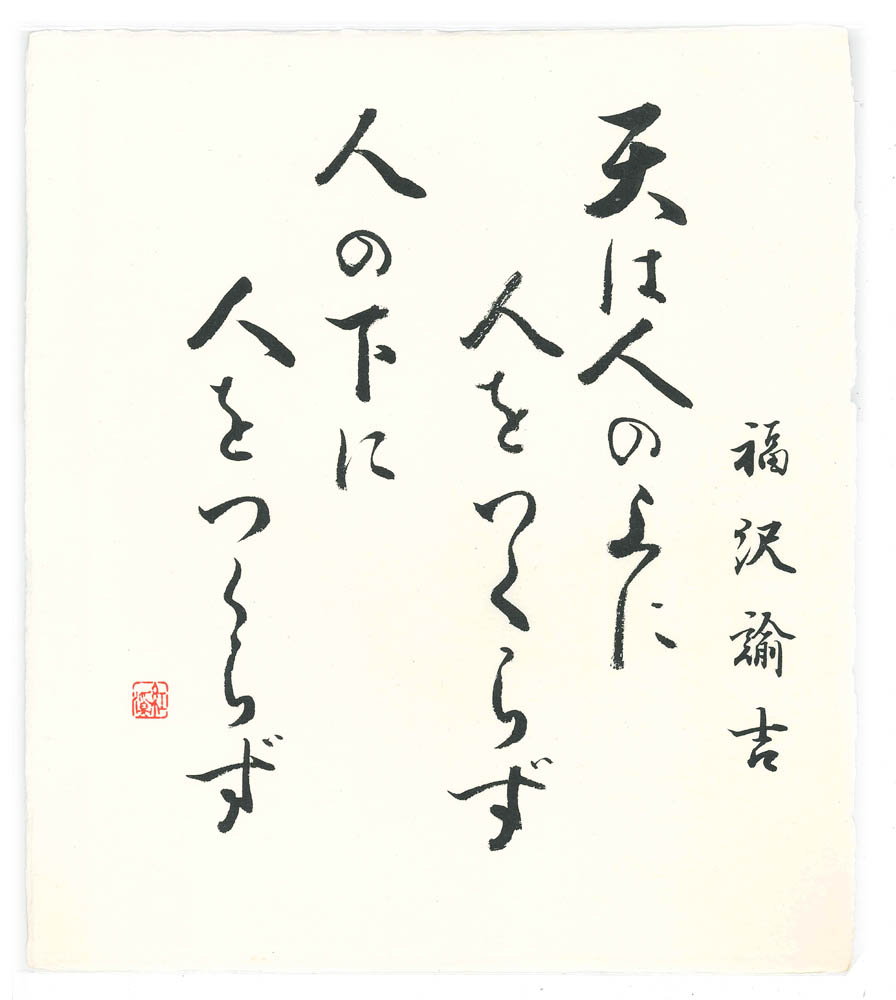 福沢諭吉
天は人の上に
人をつくらず
人の下に
人をつくらず